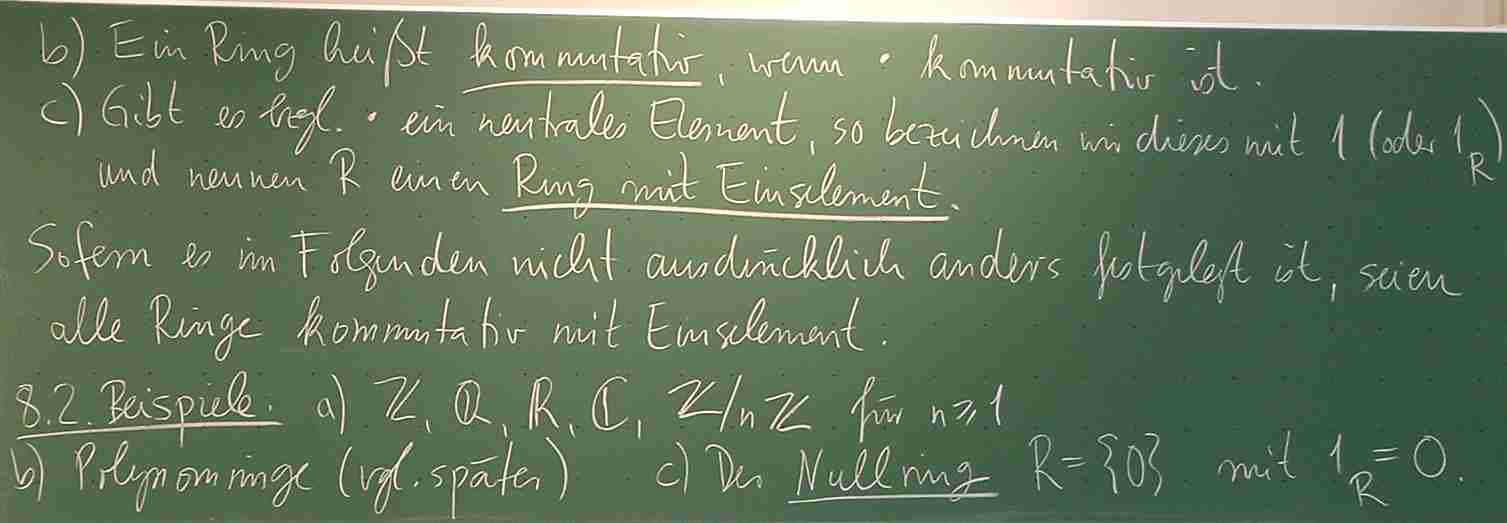 b) Ein Ring heißt kommutativ, wenn · kommutativ ist.
c) Gibt es bzgl. · ein neutrales Element, so bezeichnen wir dieses mit 1 (oder 1_R)
und nennen R einen Ring mit Einselement.
Sofern es im Folgenden nicht ausdrücklich anders festgelegt ist, seien
alle Ringe kommutativ mit Einselement.
8.2. Beispiele: a) ℤ, ℚ, ℝ, ℂ, ℤ/nℤ für n ≥ 1
b) Polynomringe (vgl. später) c) Der Nullring R = {0} mit 1_R = 0.